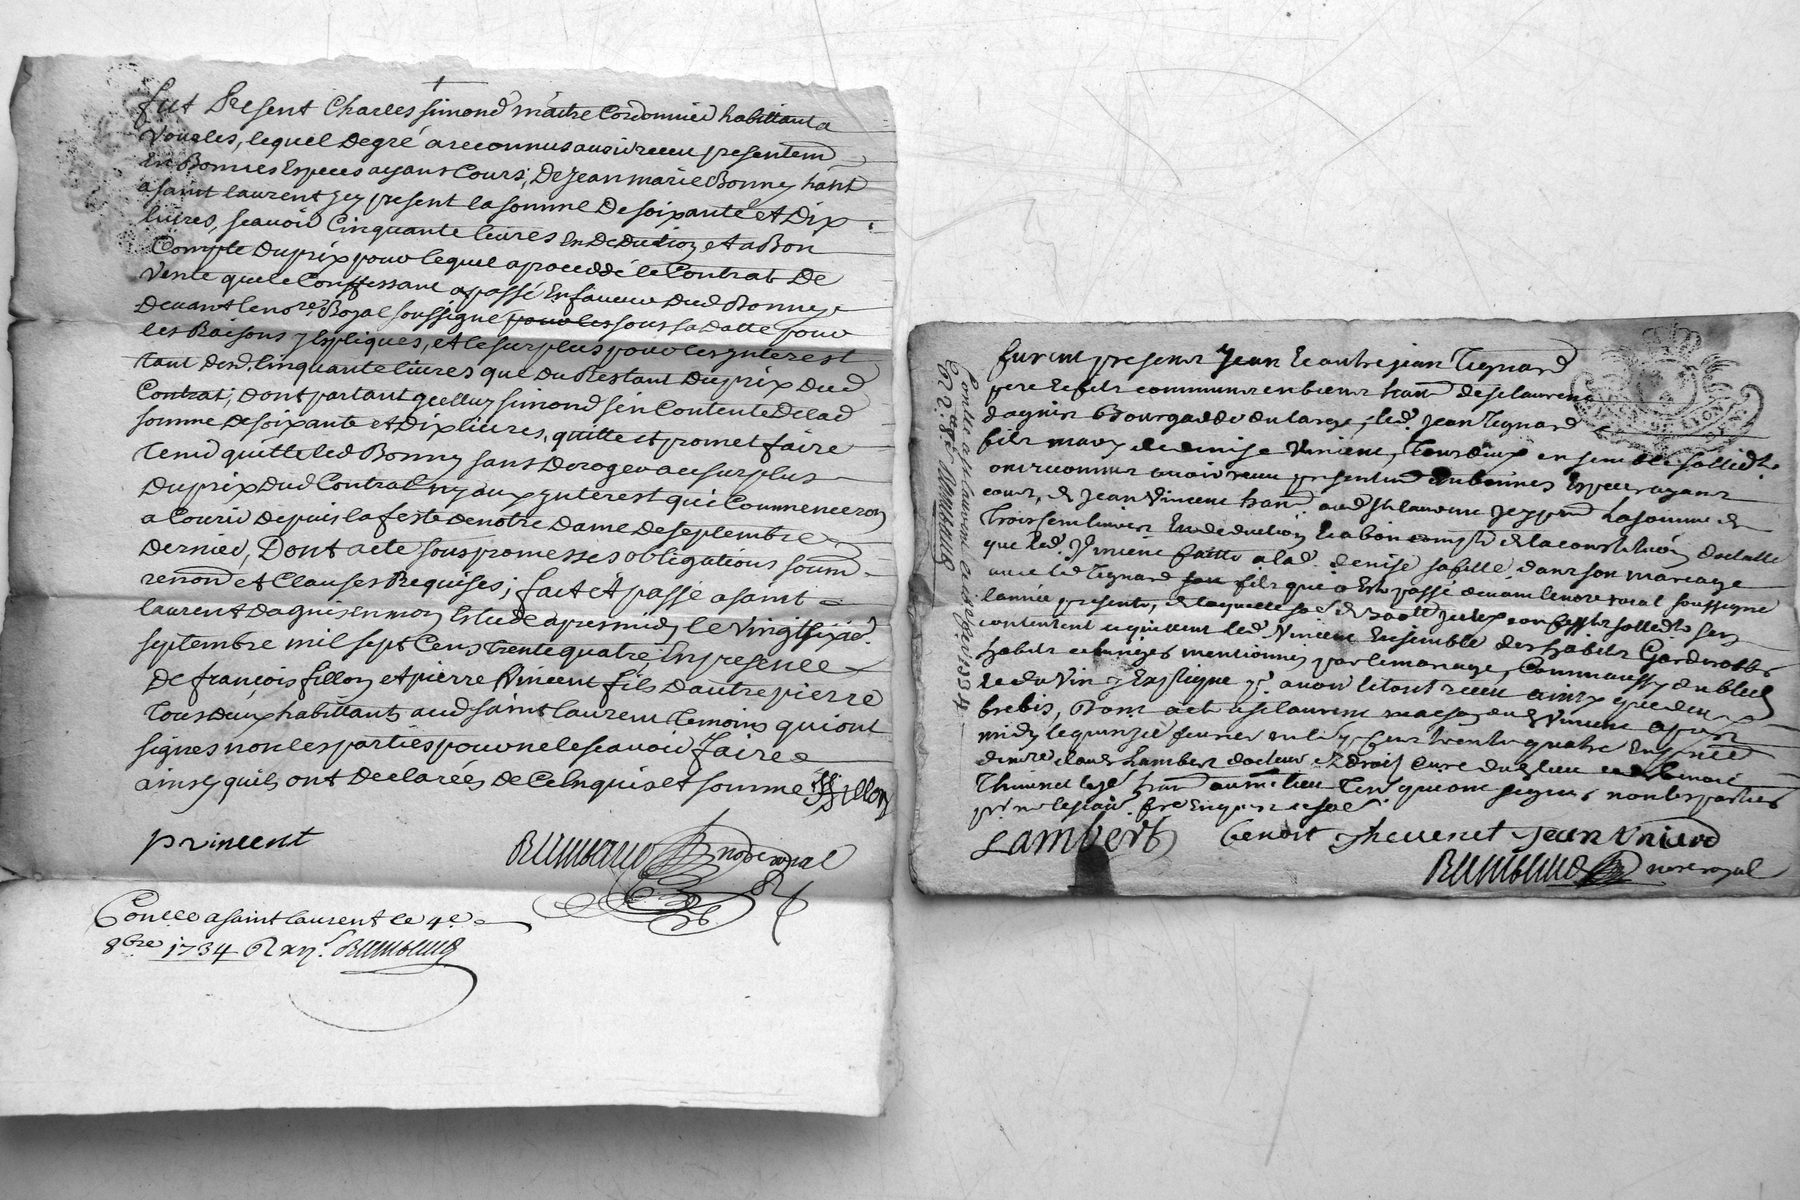 fut Present Charles Simond maitre Cordonnier habittant a
Vourles, lequel de gré a reconnus avoir receu presentem
En Bonnes Especes ayant Cours, De Jean marie Bonny hant
a saint laurent jcy present la somme De soixante et Dix
livres, scavoir Cinquante livres En Deduction et a Bon
Compte Du prix pour lequel a proceddé le Contrat De
Vente que le Confessant a passé En faveur Dud Bonny
Devant le nore Royal soussigné pour les sous sa datte pour
les Raisons y Expliques, et le surplus pour les ynterest
tant desd. Cinquante livres que du Restant Du prix Dud
Contrat; dont partant jcelluy Simond s'en Contente De lad
somme De soixante et Dix livres, quitte et promet faire
tenir quitte led Bonny sans Deroger au surplus
Du prix Dud Contrat ny aux ynterest qui Commenceron
a Courir depuis la feste de notre Dame de septembre
dernier, Dont acte sous promesses obligations soum
renon et Clauses Requises; fait et passé a saint
laurent dagny En mon Estude apres midy le Vingt sixie
septembre mil sept Cens trente quatre En presence
De françois fillon et pierre Vincent fils D'autre pierre
tous deux habittants aud saint laurent temoins qui ont
signes non les parties pour ne le scavoir faire
ainsy quils ont declarées de Ce Enquis et somme ffillon
pvincent
nore royal
Conlle a saint laurent le 4e
8bre 1734
furent presens Jean et autre jean Tignard
pere et fils communs en biens hant de st laurens
dagnis led. Jean Tignard
fils mary de denise Vincent, tous deux ensemble sollidt
ont reconnus avoir receu presentem En bonnes Especes ayant
cours, de Jean Vincent hant aud st laurent jcy pnt la somme de
Trois cens livres En deduction et a bon compte de la constitution dotalle
que led. Vincent faitte a lad. denise sa fille dans son mariage
avec led Tignard fils qui a Esté passé devant le nore royal soussigné
l'année presente, de laquelle
contentent et quittent led. Vincent Ensemble des habits Garderobbe
mentionnes par le mariage, Comm aussy du bled
et du Vin y Expliqué pr. avoir le tout receu ainsy que des
brebis, Dont acte a st laurent maison du d Vincent apres
midy le quinzie fevrier mil sept Cens trente quatre En pnce
de mre Lambert docteur Ez droit, Curé dud lieu et de Benoit
Thevenet hant aud lieu Tem qui ont signes non les parties
Lambert Benoit Thevenet Jean
nore royal